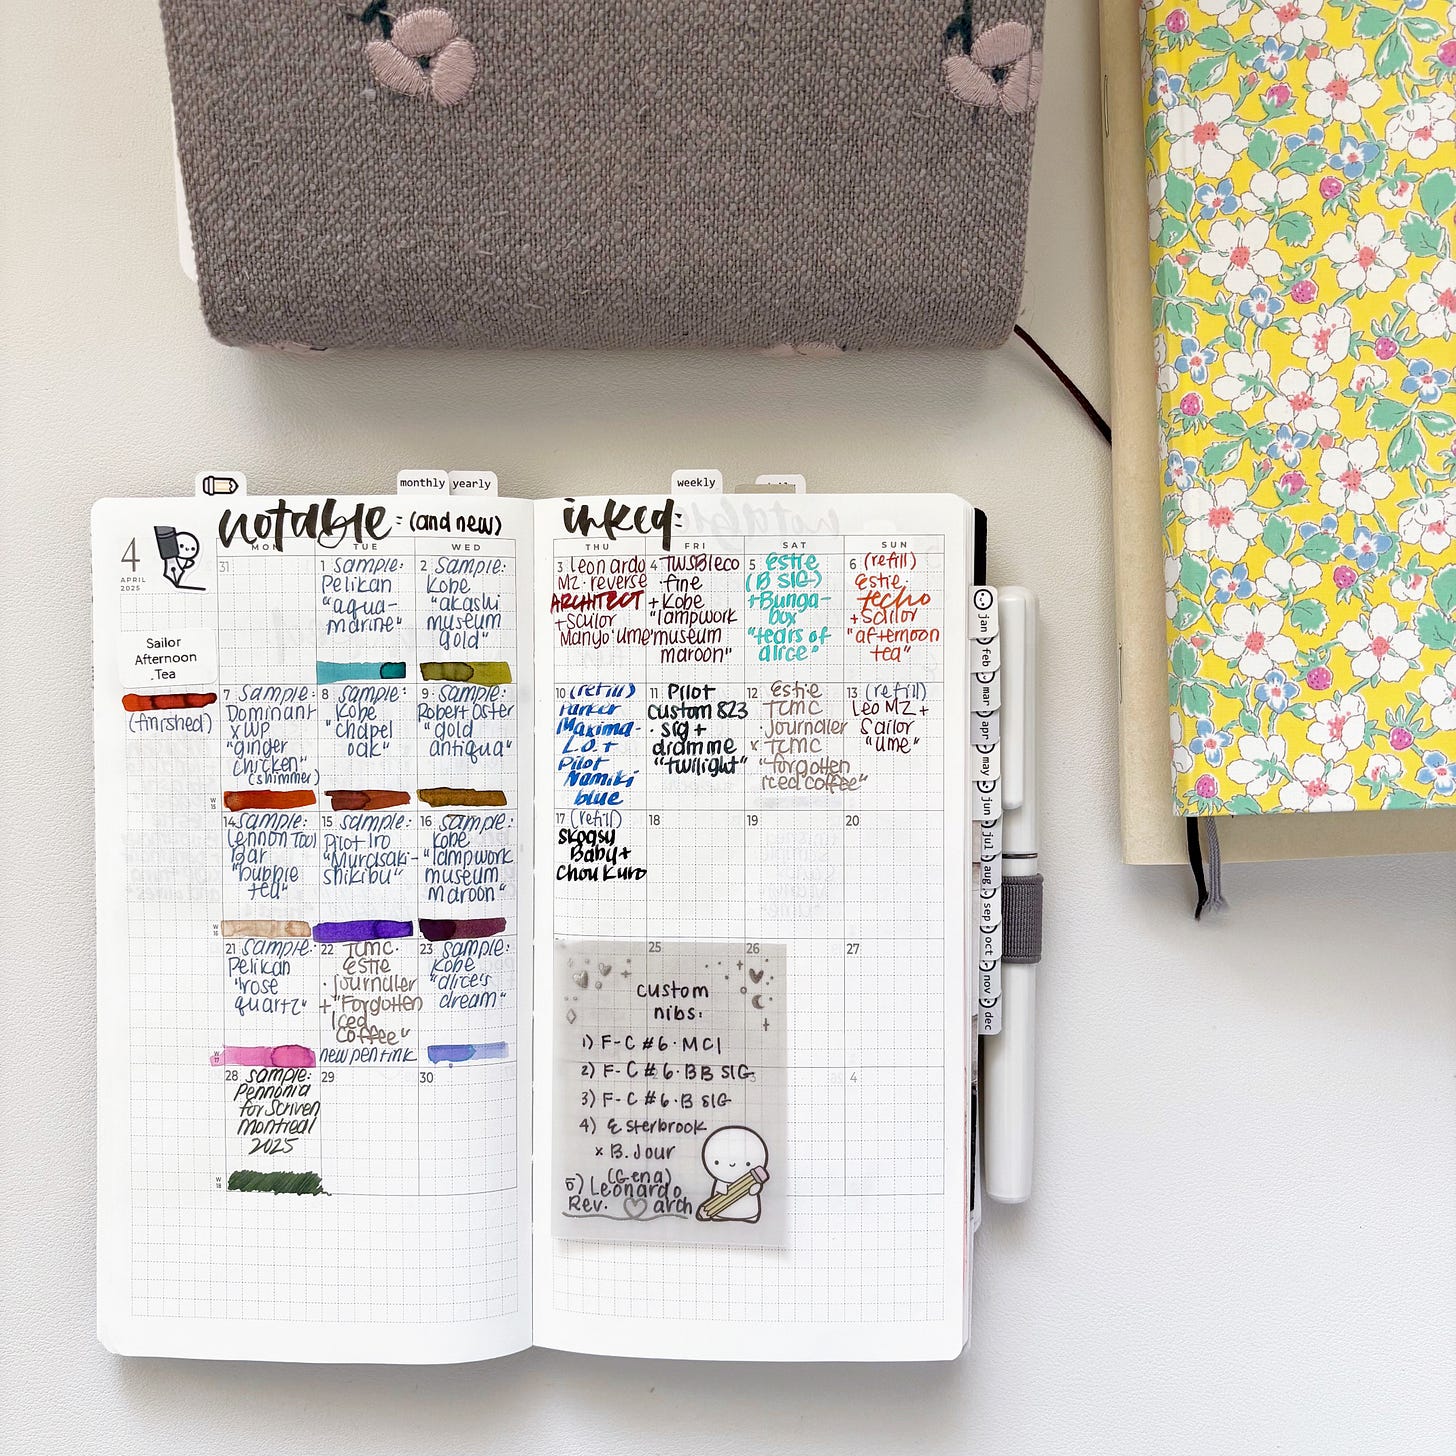 monthly
yearly
weekly
notable: (and new)
inked:
4
APRIL
2025
MON
TUE
WED
THU
FRI
SAT
SUN
Sailor
Afternoon
Tea
(finished)
31
1 Sample:
Pelikan
"aqua-
marine"
2 Sample:
Kobe
"akashi
museum
gold"
3 Leonardo
MZ. reverse
ARCHITECT
+ Sailor
Manyo 'ume'
4 TWSBI eco
· fine
+ Kobe
"lampwork
museum
maroon"
5 Estie
(B SIG)
+ Bunga-
box
"tears of
alice"
6 (refill)
Estie ·
techo
+ Sailor
"afternoon
tea"
7 Sample:
Dominant
x WP
"ginger
chicken"
(shimmer)
W
15
8 Sample:
Kobe
"chapel
oak"
9 Sample:
Robert Oster
"gold
antiqua"
10 (refill)
Parker
Maxima-
L.O. +
Pilot
Namiki
blue
11 Pilot
custom 823
· sig +
dramme
"twilight"
12 Estie
TCMC
· Journaller
x TCMC
"forgotten
iced coffee"
13 (refill)
Leo MZ +
Sailor
"ume"
14 Sample:
Lennon Tool
Bar
"bubble
tea"
W
16
15 Sample:
Pilot Iro
"Murasaki-
shikibu"
16 Sample:
Kobe
"lampwork
museum
maroon"
17 (refill)
Skogsy
Baby +
Chou Kuro
18
19
20
21 Sample:
Pelikan
"rose
quartz"
W
17
22 TCMC ·
Estie
· Journaller
+ "Forgotten
Iced
Coffee"
new pen + ink
23 Sample:
Kobe
"alice's
dream"
25
26
27
28 Sample:
Pennonia
for Scriven
Montreal
2025
W
18
29
30
3
4
custom
nibs:
1) F-C #6 · MCI
2) F-C #6 · BB SIG
3) F-C #6 · B SIG
4) Esterbrook
x B. Jour
(Gena)
5) Leonardo
Rev. arch
jan
feb
mar
apr
may
jun
jul
aug
sep
oct
nov
dec